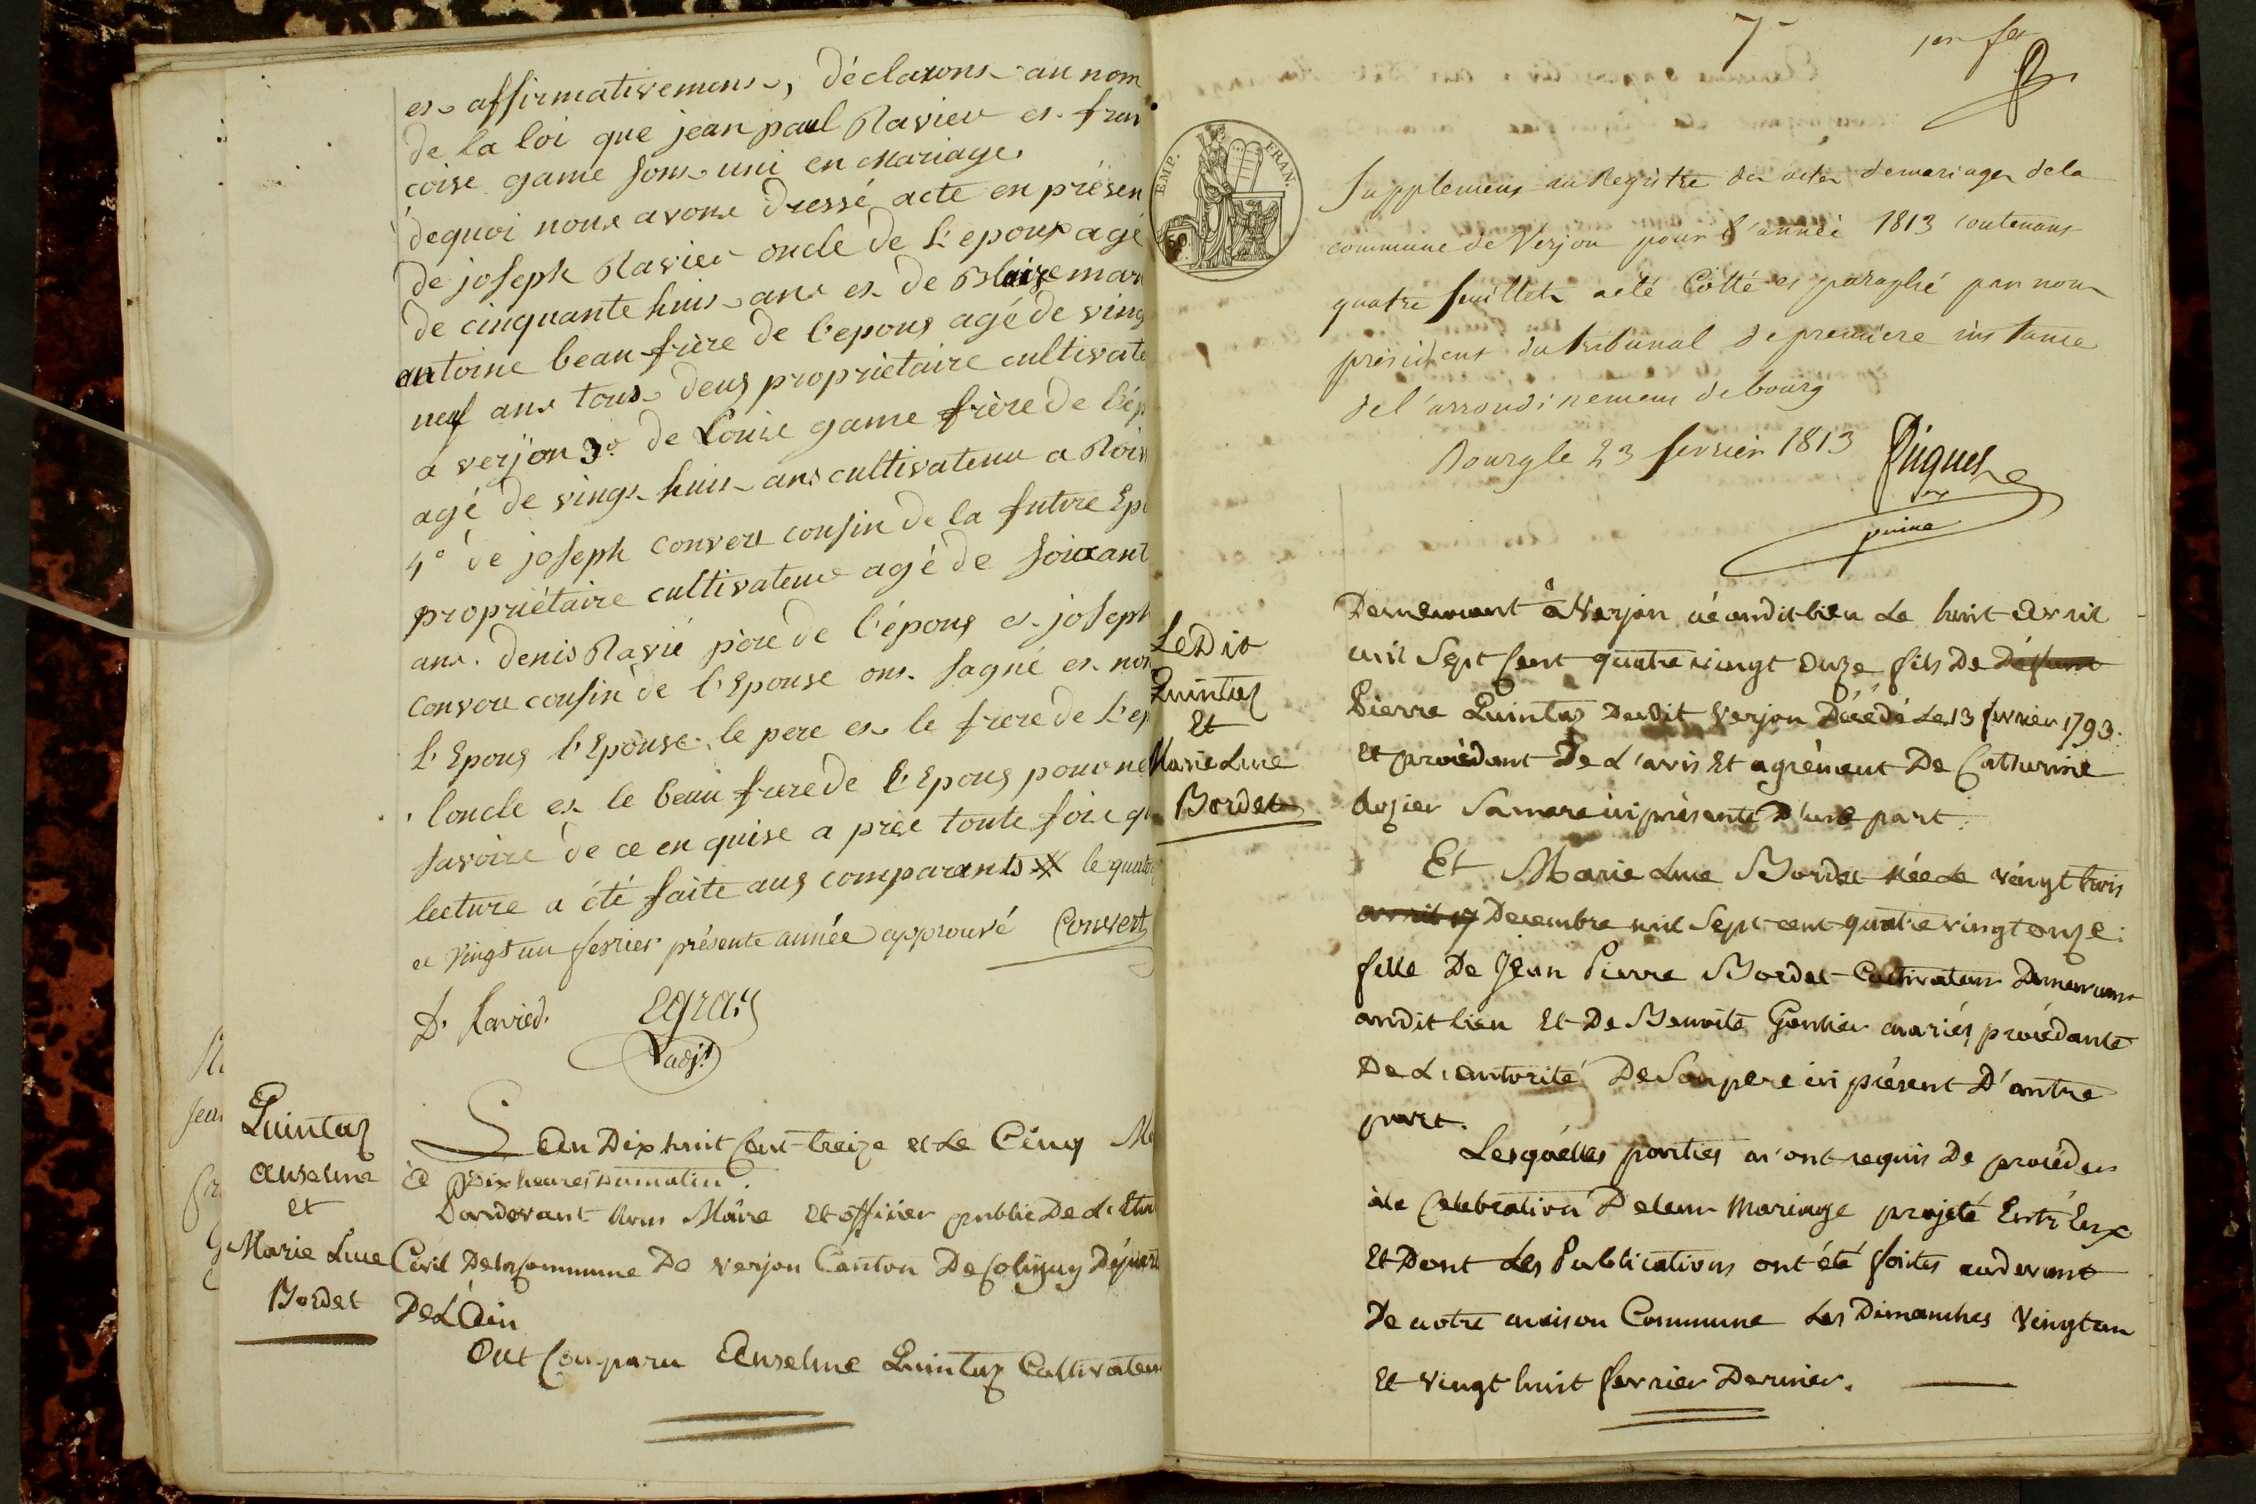 et affirmativement, déclarons au nom
de la loi que jean paul Ravier et fran
coise game sont uni en Mariage
dequoi nous avons dressé acte en présen
de joseph Ravier oncle de l'epoux agé
de cinquante huit ans et de Blaize mar
antoine beau frère de l'epoux agé de ving
neuf ans tous deux propriétaire cultivate
a verjon 3º de Louise game frère de l'ép
agé de vingt huit ans cultivateur a Roiss
4º de joseph convert cousin de la future Epo
propriétaire cultivateur agé de soixant
ans. denis Ravié père de l'époux et joseph
convert cousin de l'Epouse ont signé et non
l'Epoux l'Epouse, le pere et le frere de l'ep
loncle et le beau frere de l'Epoux pour ne
savoire de ce enquise a près toute fois qu
lecture a été faite aux comparants le quato
et vingt un fevrier présente année approuvé Convert
D. Ravied. Égraz
adjt
Quintaz
Anselme
et
Marie Luce
Bordet
L'an Dix huit Cent treize et Le Cinq Ma
à Dix heures Du matin.
Pardevant Nous Maire Et officier public De L'Etat
Civil De la Commune De Verjon Canton De Coligny Départ
De L'Ain
Ont Comparu Anselme Quintaz Cultivateur
7
1er fer
EMP. FRAN.
50 C.
Supplement au Registre des actes de mariages de la
commune de Verjon pour l'année 1813 contenant
quatre feuillets a été Côtté et paraphé par nous
président du tribunal de premiere instance
de l'arrondissement de bourg
Bourg le 23 fevrier 1813
Le Dit
Quintaz
Et
Marie Luce
Bordet
Demeurant à Verjon né au dit lieu Le huit Avril
mil Sept Cent quatre vingt Onze fils De Défunt
Pierre Quintaz Du Dit Verjon Décédé Le 13 fevrier 1793.
Et procédant De L'avis Et agrément De Catherine
Rozier Sa mere ici présente D'une part.
Et Marie Luce Bordet Née Le vingt trois
avril 17 Decembre mil Sept cent quatre vingt onze.
fille De Jean Pierre Bordet Cultivateur Demeurant
audit Lieu Et De Benoite Gonthier mariés, procédante
De L'autorité De Son pere ici présent D'autre
part.
Lesquélles parties m'ont requis De procéder
à la Celebration De leur Mariage projeté Entr'Eux
Et Dont Les Publications ont été faites audevant
De notre maison Commune Les Dimanches Vingt un
Et vingt huit fevrier Dernier.